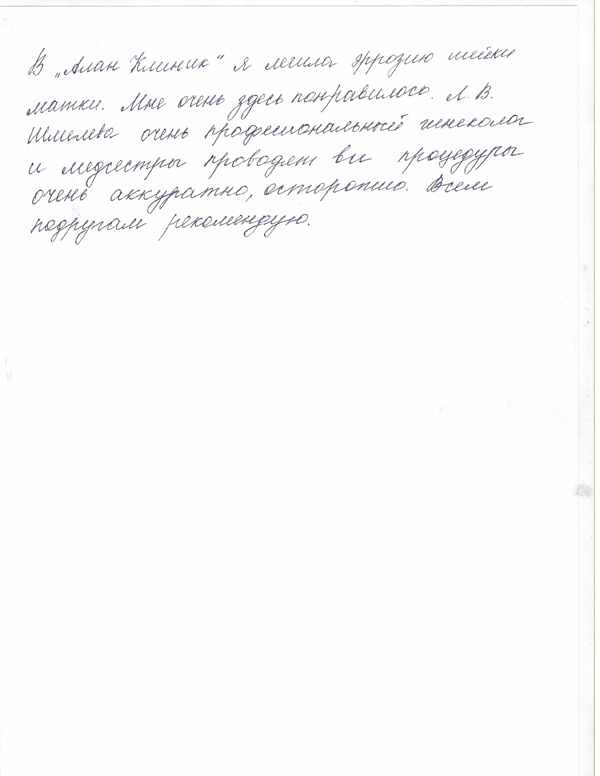 В „Алан Клиник“ я лечила эррозию шейки
матки. Мне очень здесь понравилось. Л. В.
Шмелева очень професиональный гинеколог
и медсестры проводят все процедуры
очень аккуратно, осторожно. Всем
подругам рекомендую.